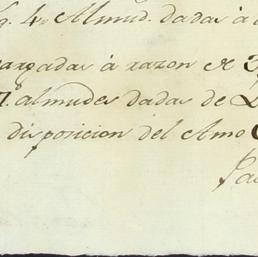 4. Almud. dadas à
cargadas à razon de
7. almudes dadas de
disposicion del Amo